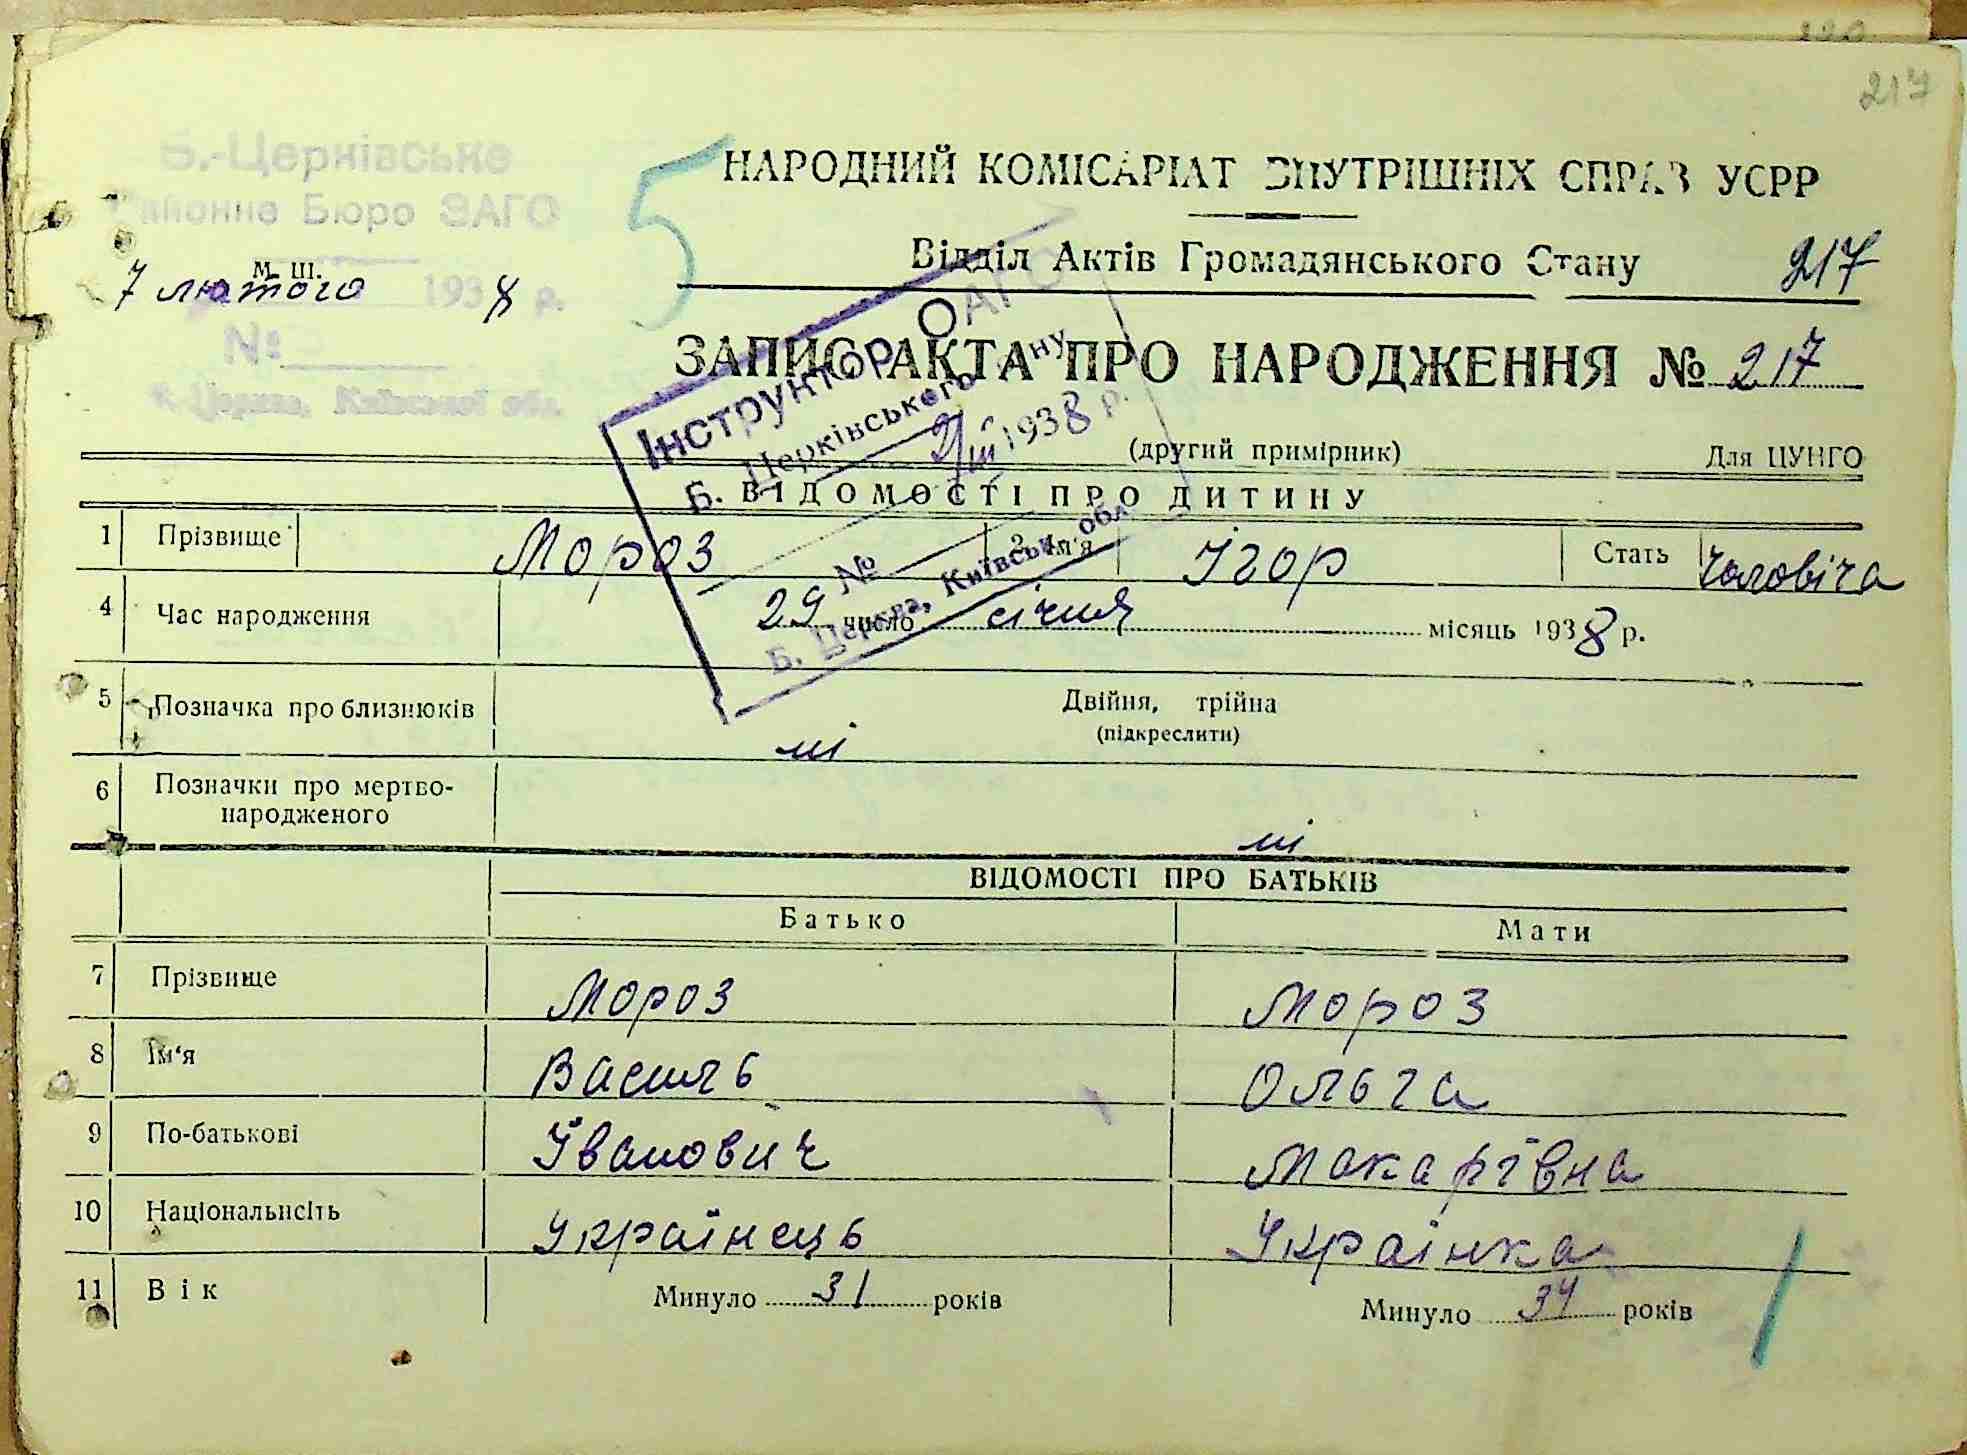 217
Б.-Церківське
Районне Бюро ЗАГС
м. ш.
7 лютого 1938 р.
№
Б. Церква, Київської обл.
5
НАРОДНИЙ КОМІСАРІАТ ВНУТРІШНІХ СПРАВ УСРР
Відділ Актів Громадянського Стану 217
ЗАПИС АКТА ПРО НАРОДЖЕННЯ № 217
(другий примірник) Для ЦУНГО
Інструктор ОАГС
Б. Церківського
2/III 1938 р.
№
Б. Церква, Київськ. обл.
ВІДОМОСТІ ПРО ДИТИНУ
1 Прізвище Мороз 2 Ім'я Ігор Стать чоловіча
4 Час народження 29 число січня місяць 1938 р.
5 Позначка про близнюків Двійня, трійна
(підкреслити)
ні
6 Позначки про мертво-
народженого
ні
ВІДОМОСТІ ПРО БАТЬКІВ
Батько Мати
7 Прізвище Мороз Мороз
8 Ім'я Василь Ольга
9 По-батькові Іванович Макарівна
10 Національність Українець Українка
11 Вік Минуло 31 років Минуло 34 років